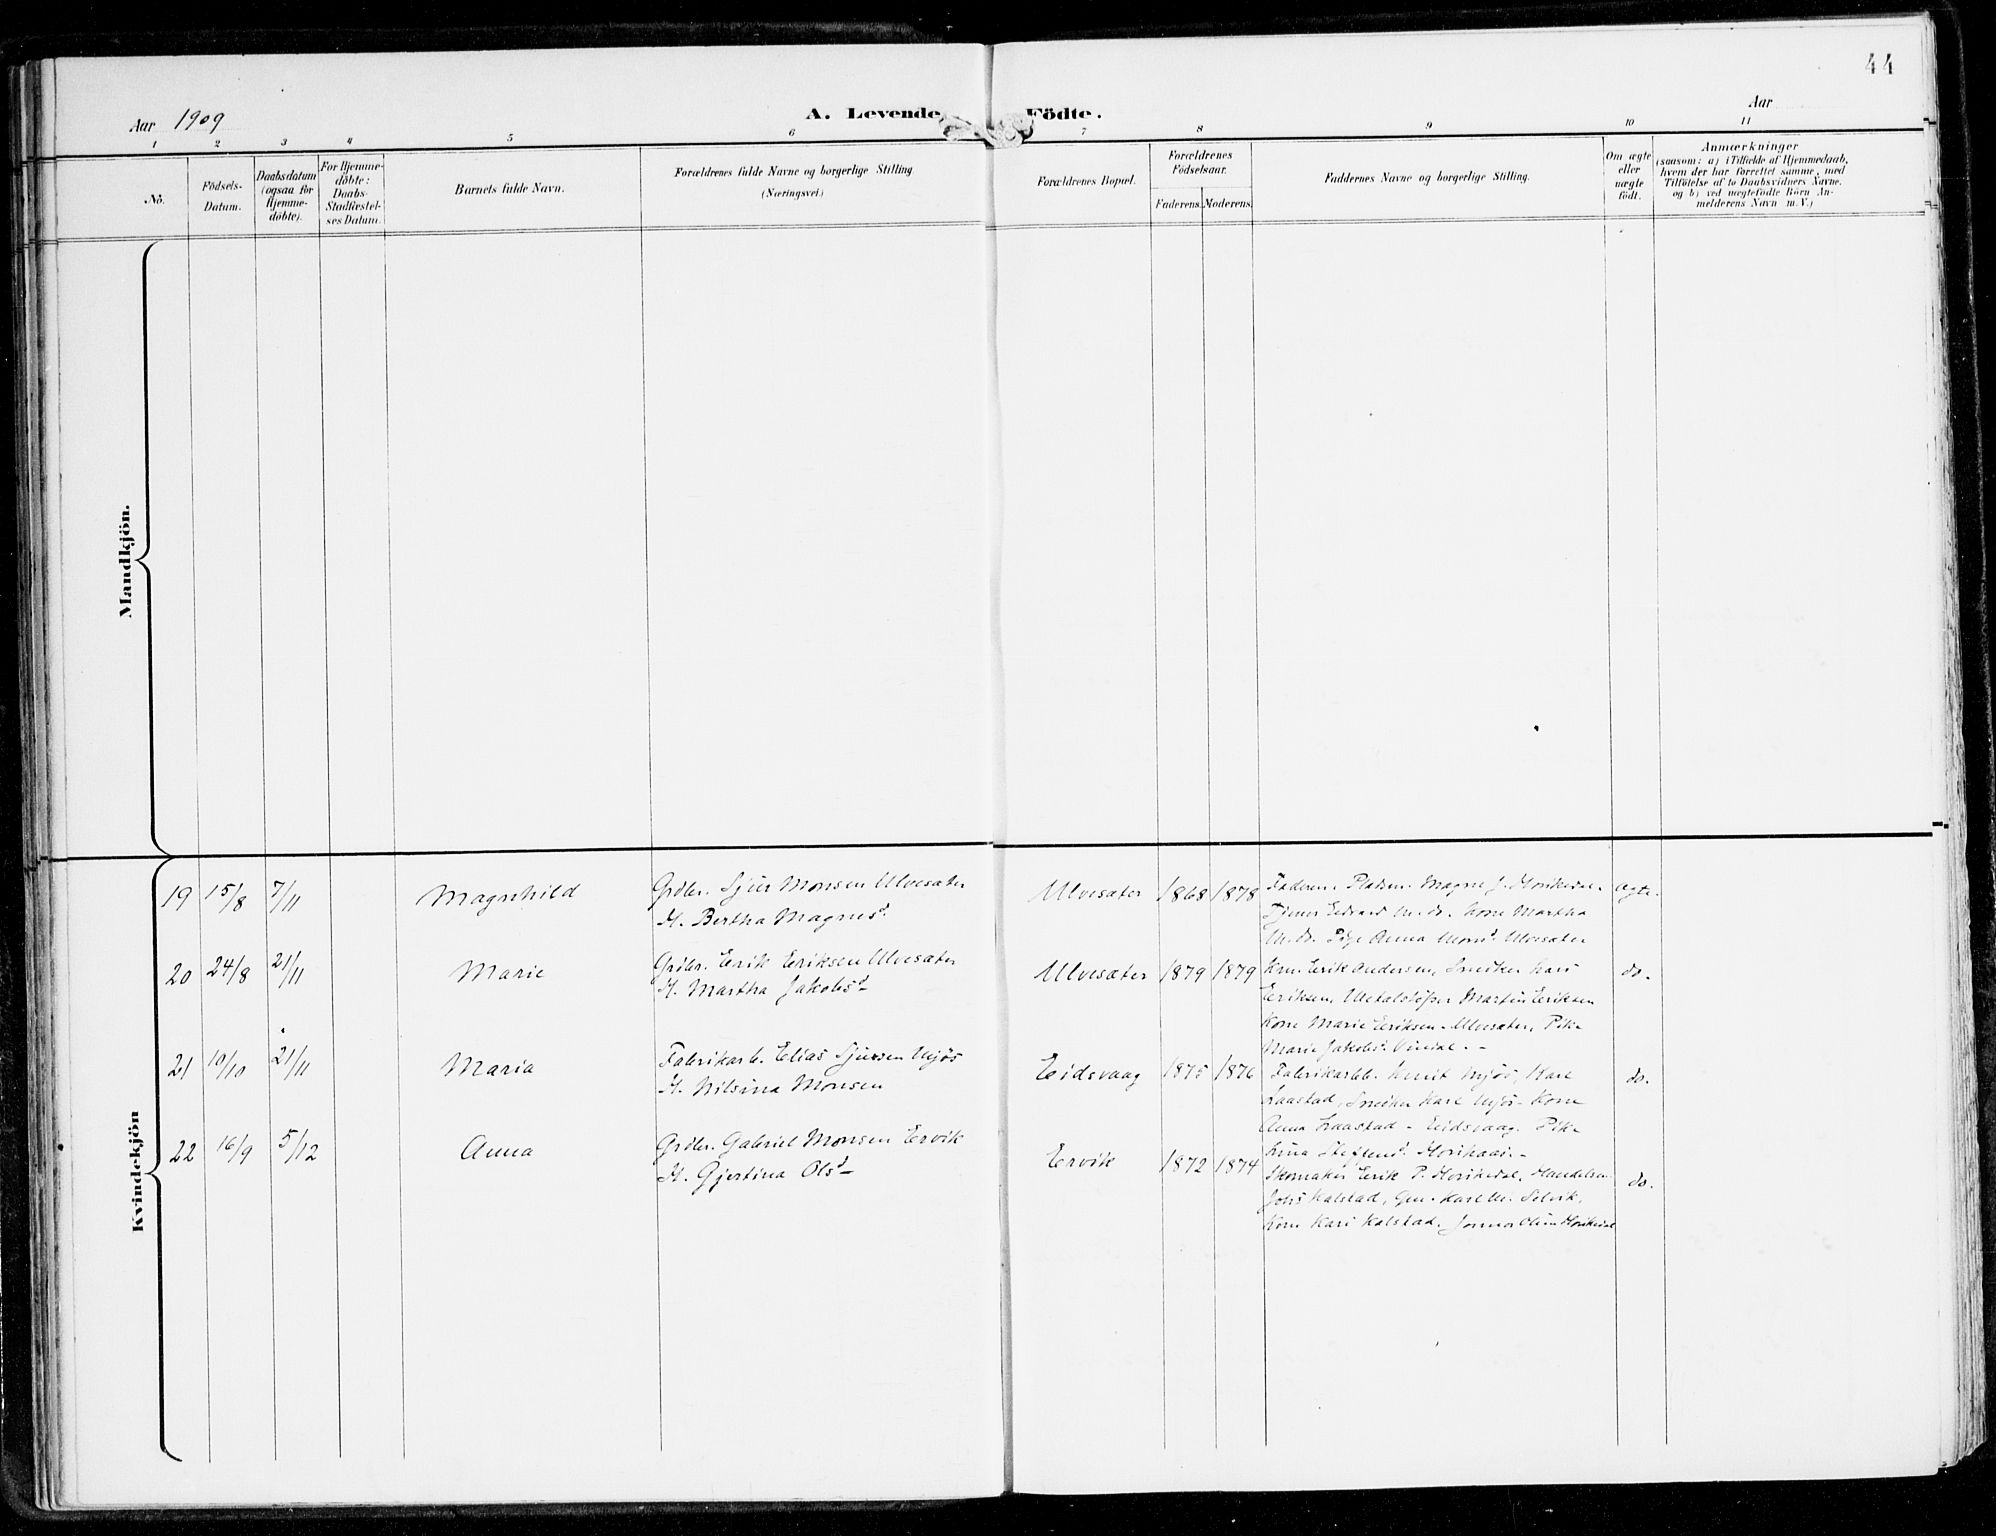 44
Aar 1909
A. Levende Födte.
Aar
1 2 3 4 5 6 7 8 9 10 11
No.
Födsels-
Datum.
Daabsdatum
(ogsaa for
Hjemme-
döbte).
For Hjemme-
döbte:
Daabs-
Stadfæstel-
ses Datum.
Barnets fulde Navn.
Forældrenes fulde Navne og borgerlige Stilling
(Næringsvei.)
Forældrenes Bopæl.
Forældrenes
Födselsaar.
Faderens. Moderens.
Faddernes Navne og borgerlige Stilling.
Om ægte
eller
uægte
födt.
Anmærkninger
(saasom: a) i Tilfælde af Hjemmedaab,
hvem der har forrettet samme, med
Tilföielse af to Daabsvidners Navne.
og b) ved uægtefödte Börn An-
melderens Navn m. V.)
Mandkjön.
Kvindekjön
19 15/8 7/11 Magnhild
Grdbr. Sjur Monsen Ulvesæter
H. Bertha Magnusd.
Ulvesæter 1868 1878
Faderen, Pladsm. Magne J.
Tjener Edvard M. ds. Kone Martha
M. ds. Pige Anna Monsd. Ulvesæter
ægte.
20 24/8 21/11 Marie
Grdbr. Erik Eriksen Ulvesæter
H. Martha Jakobsd.
Ulvesæter 1879 1879
Erik Andersen, Snedker Lars
Eriksen, Metalstöper Martin Eriksen
Kone Marie Eriksen - Ulvesæter, Pike
Marie Jakobsd.
do.
21 10/10 21/11 Maria
Fabrikarb. Elias Sjursen Mjös
H. Nilsina Monsen
Eidsvaag 1875 1876
Fabrikarbb. Knut Mjös, Karl
Laastad, Snedker Karl Mjös - Kone
Anna Laastad - Eidsvaag. Pike
Lina
do.
22 16/9 5/12 Anna
Grdbr. Gabriel Monsen Ervik
H. Gjertina Olsd.
Ervik 1872 1874
Skomaker Erik P.
Johs Kalstad, Gm. Karl M. Selvik,
Kone Kari Kalstad.
do.